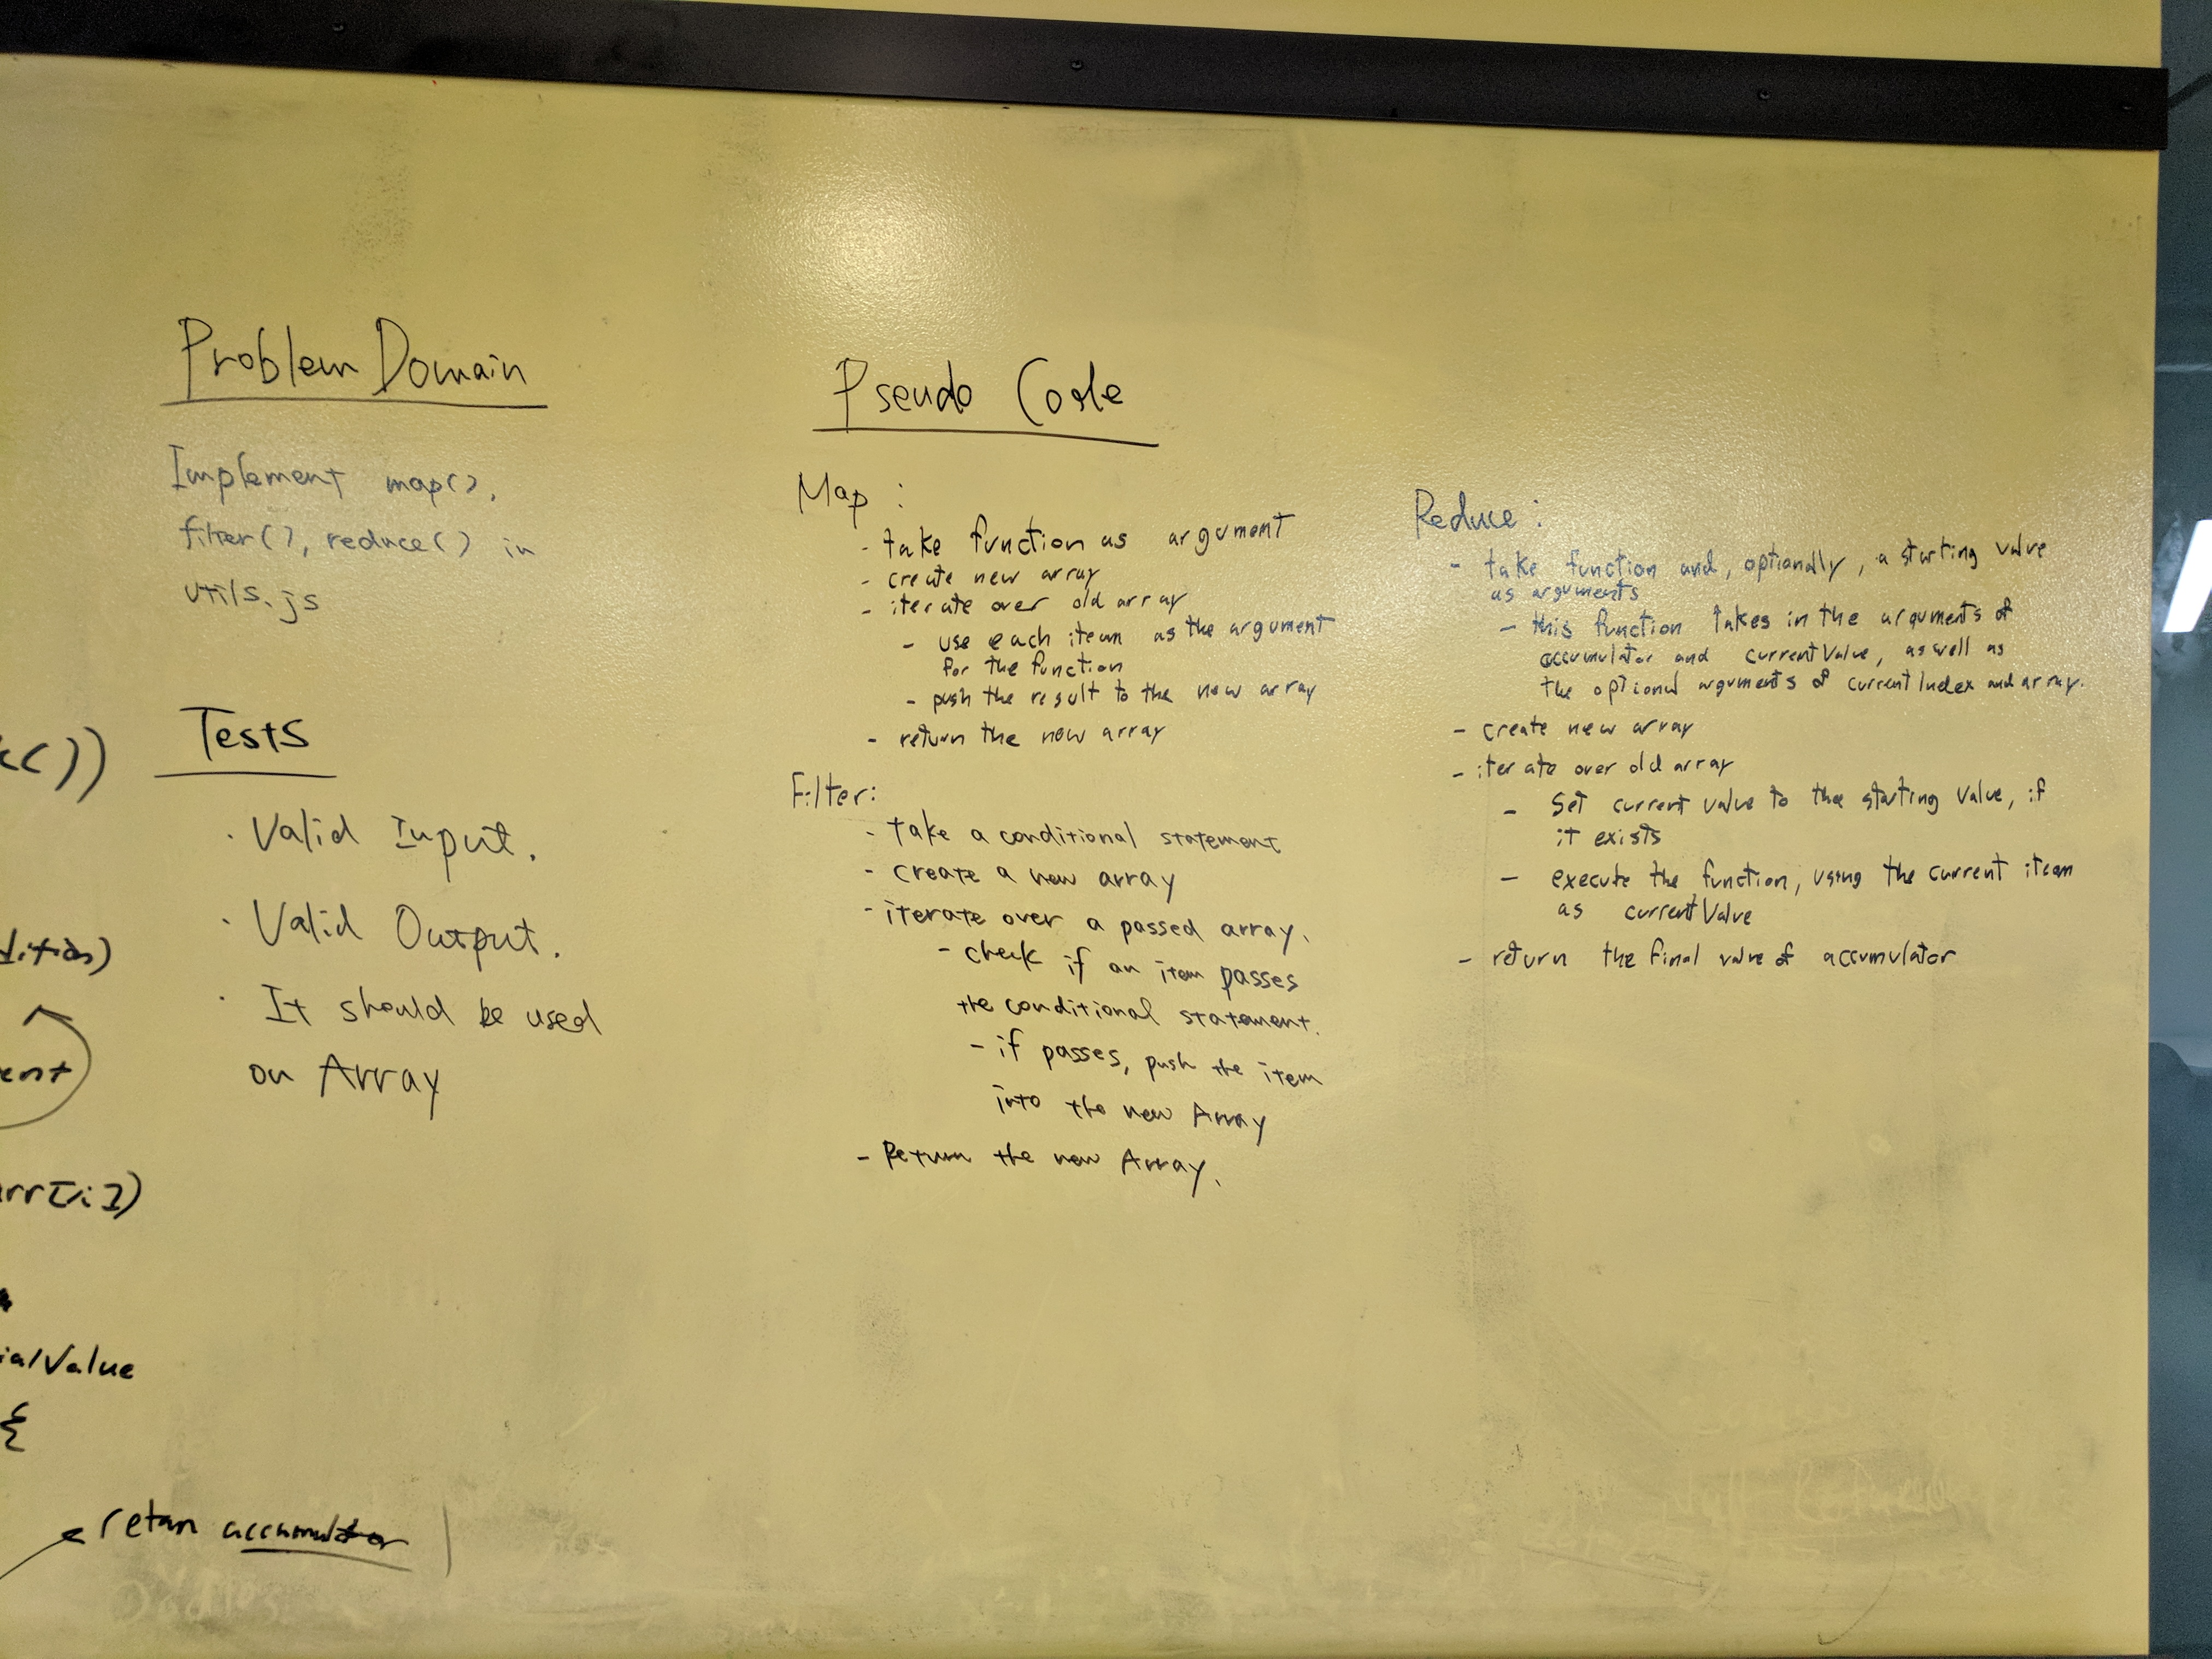 Problem Domain
Implement map(),
filter(), reduce() in
utils.js
Tests
· Valid Input.
· Valid Output.
· It should be used
on Array
Pseudo Code
Map :
- take function as argument
- create new array
- iterate over old array
- use each item as the argument
for the function
- push the result to the new array
- return the new array
Filter:
- take a conditional statement
- create a new array
- iterate over a passed array.
- check if an item passes
the conditional statement.
- if passes, push the item
into the new Array
- Return the new Array.
Reduce :
- take function and, optionally, a starting value
as arguments
- this function takes in the arguments of
accumulator and currentValue, as well as
the optional arguments of currentIndex and array.
- create new array
- iterate over old array
- Set current value to the starting value, if
it exists
- execute the function, using the current item
as currentValue
- return the final value of accumulator
())
dition)
ent
arr[i])
ialValue
{
return accumulator